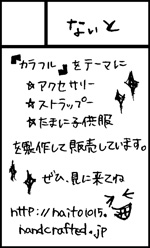 ないと
『カラフル』をテーマに
☆アクセサリー
☆ストラップー
☆たまに子供服
を製作して販売しています。
ぜひ、見に来てね
http://naito1015.
handcrafted.jp